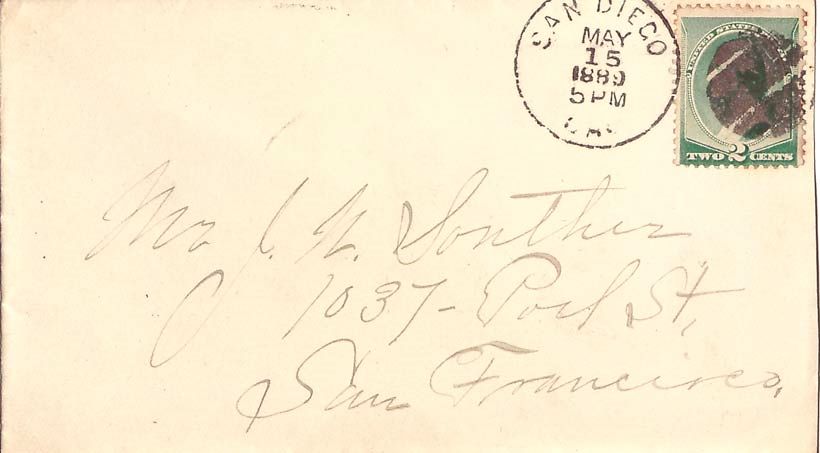 SAN DIEGO
MAY
15
1889
5 PM
CAL
UNITED STATES
TWO 2 CENTS
Mr J. N. Souther
1037 - Post St,
San Francisco,